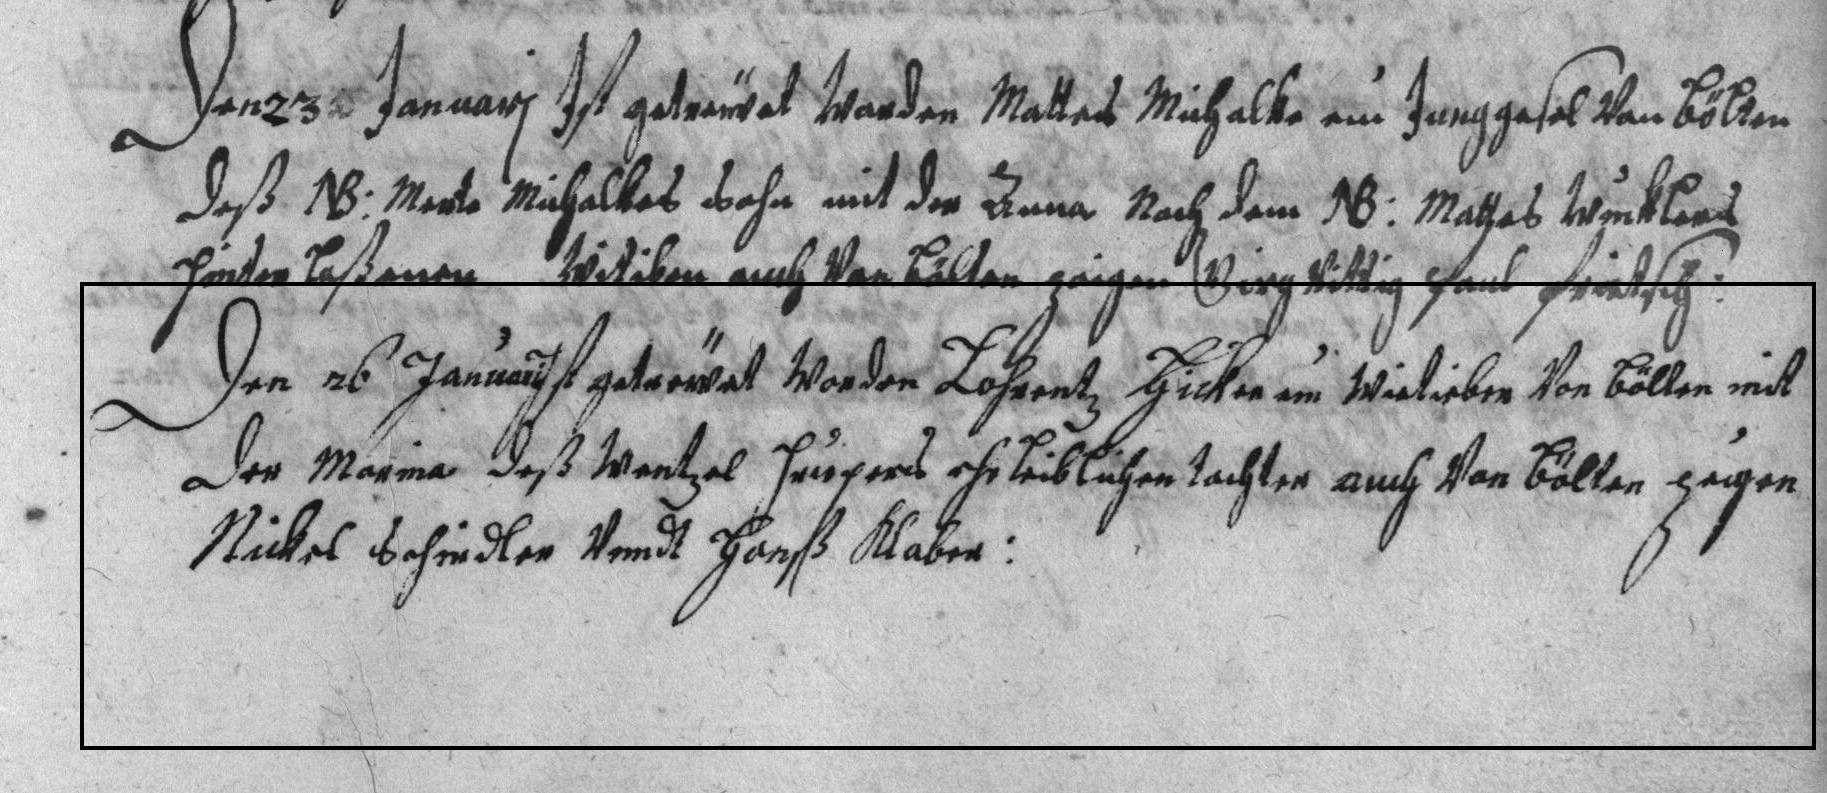 Den 23 Januarij Ist getrewet worden Mattes Michalke ein Junggesel von Bölten
deß NB: Merte Michalkes sohn mit der Anna Nach dem NB: Mattes Wincklers
hinder laßenen Witiben auch von Bölten zeigen Girg Paul Fritsch:
Den 26 Januarij Ist getrewet worden Lohrentz Hicker ein Wietieber von Bölten mit
der Marina deß Wentzel ehr leiblichen tochter auch von Bölten zeigen
Nickel Schindler vnndt Hanß Klaber: